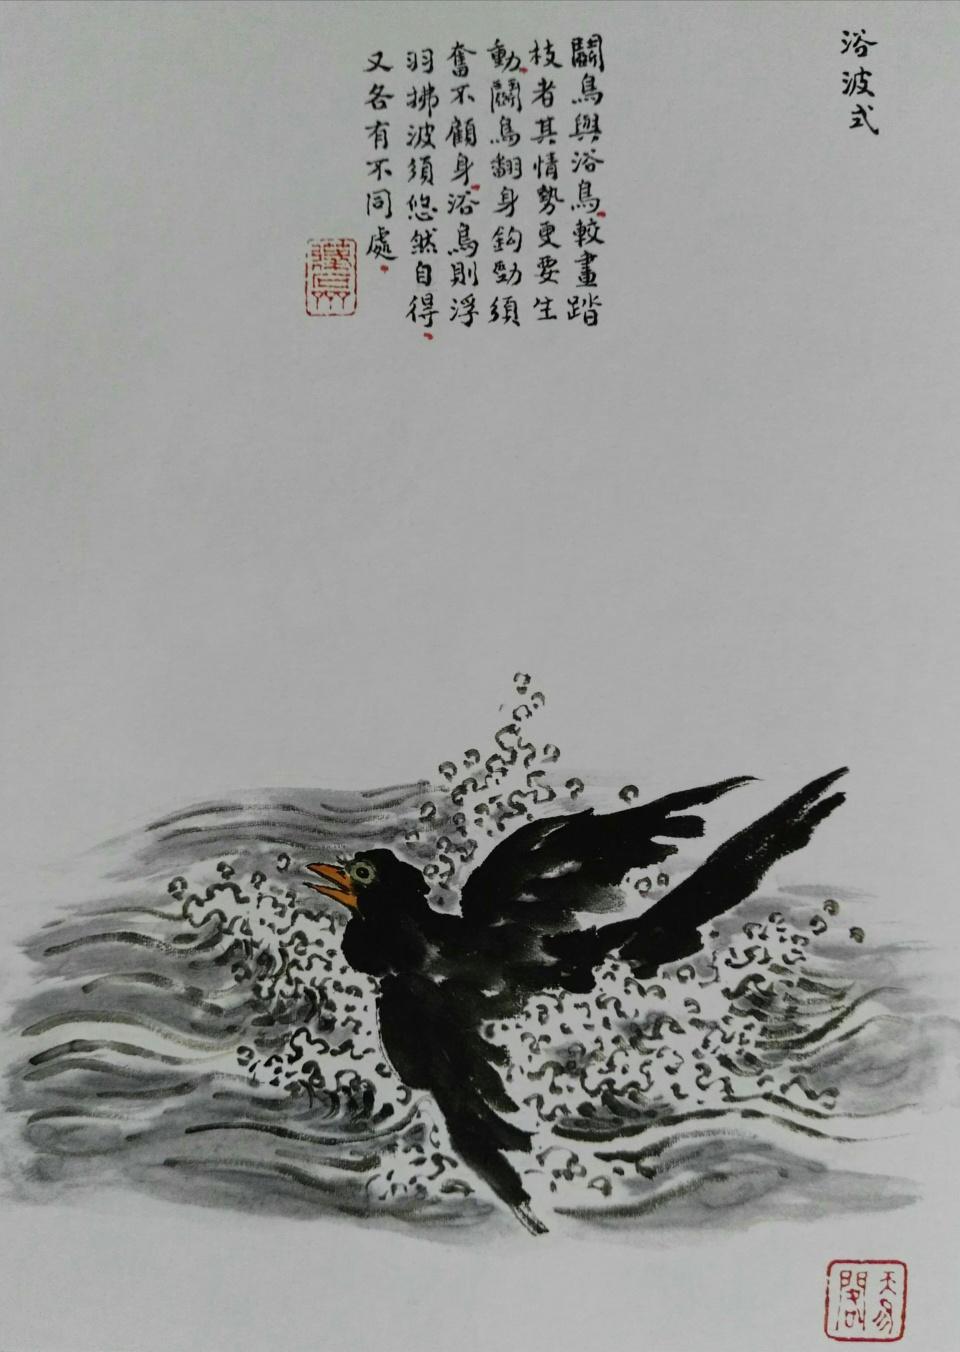 浴波式
鬭鳥與浴鳥較畫踏
枝者其情勢更要生
動鬭鳥翻身鈎勁須
奮不顧身浴鳥則浮
羽拂波須悠然自得
又各有不同處